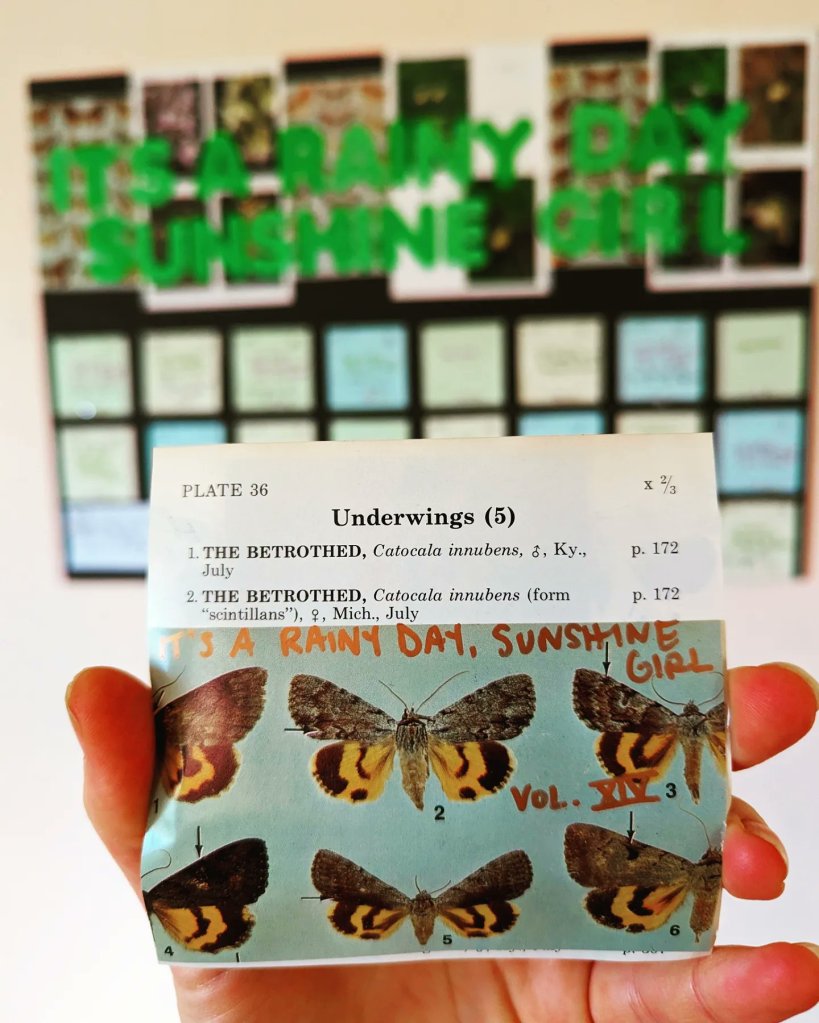 IT'S A RAINY DAY
SUNSHINE GIRL
PLATE 36 x 2/3
Underwings (5)
1. THE BETROTHED, Catocala innubens, ♂, Ky., p. 172
July
2. THE BETROTHED, Catocala innubens (form p. 172
"scintillans"), ♀, Mich., July
IT'S A RAINY DAY, SUNSHINE
GIRL
1
2
VOL. XIV
3
4
5
6